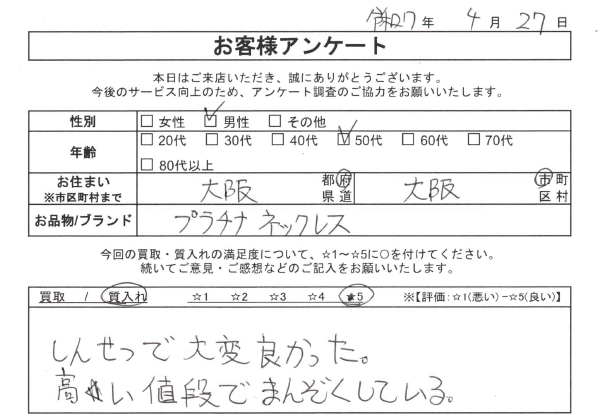 令和7年 4月 27日
お客様アンケート
本日はご来店いただき、誠にありがとうございます。
今後のサービス向上のため、アンケート調査のご協力をお願いいたします。
性別 □女性 ☑男性 □その他
年齢 □20代 □30代 □40代 ☑50代 □60代 □70代
□80代以上
お住まい ※市区町村まで 大阪 都府県道 大阪 市町区村
お品物/ブランド プラチナ ネックレス
今回の買取・質入れの満足度について、☆1～☆5に○を付けてください。
続いてご意見・ご感想などのご記入をお願いいたします。
買取 / 質入れ ☆1 ☆2 ☆3 ☆4 ☆5 ※【評価:☆1(悪い)－☆5(良い)】
しんせつで大変良かった。
高い値段でまんぞくしている。